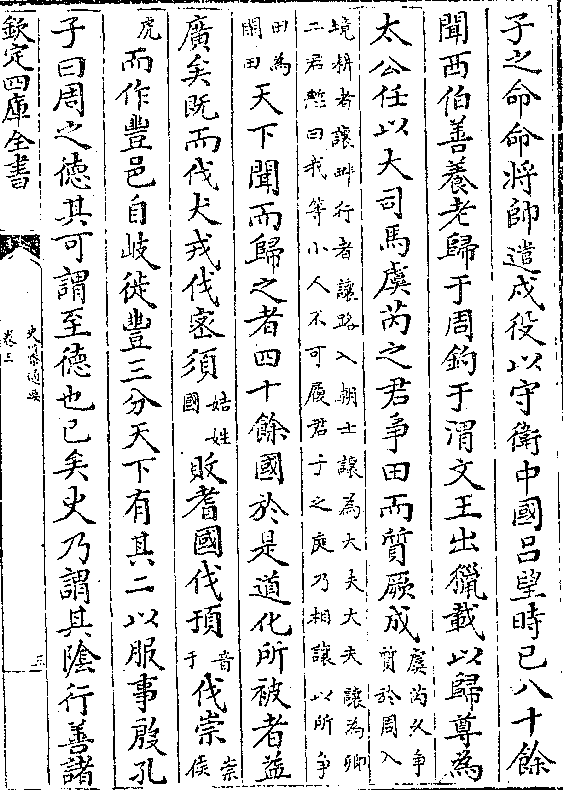 子之命命将帥遣戍役以守衛中國吕望時已八十餘
聞西伯善養老歸于周釣于渭文王出獵載以歸尊為
太公任以大司馬虞芮之君爭田而質厥成虞芮乆爭質於周入
境耕者讓畔行者讓路入朝士讓為大夫大夫讓為卿
二君慙曰我等小人不可履君子之庭乃相讓以所爭
田為閒田天下聞而歸之者四十餘國於是道化所被者益
廣矣既而伐犬戎伐密須姞姓國敗耆國伐頇音于伐崇崇侯
虎而作豐邑自岐徙豐三分天下有其二以服事殷孔
子曰周之德其可謂至德也已矣史乃謂其陰行善諸
欽定四庫全書
史纂通要
卷三
五